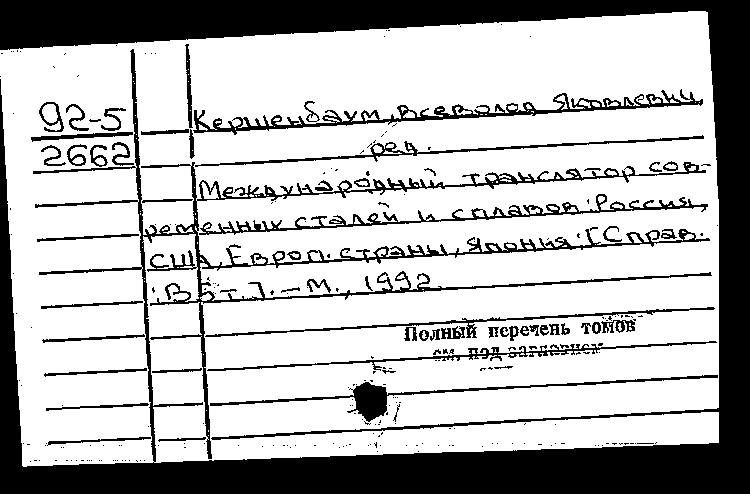 92-5
2662
Кершенбаум, Всеволод Яковлевич,
ред.
Международный транслятор сов-
ременных сталей и сплавов: Россия,
США, Европ. страны, Япония: [Справ.
: В 5 т.]. – М., 1992.
Полный перечень томов
см. под заглавием